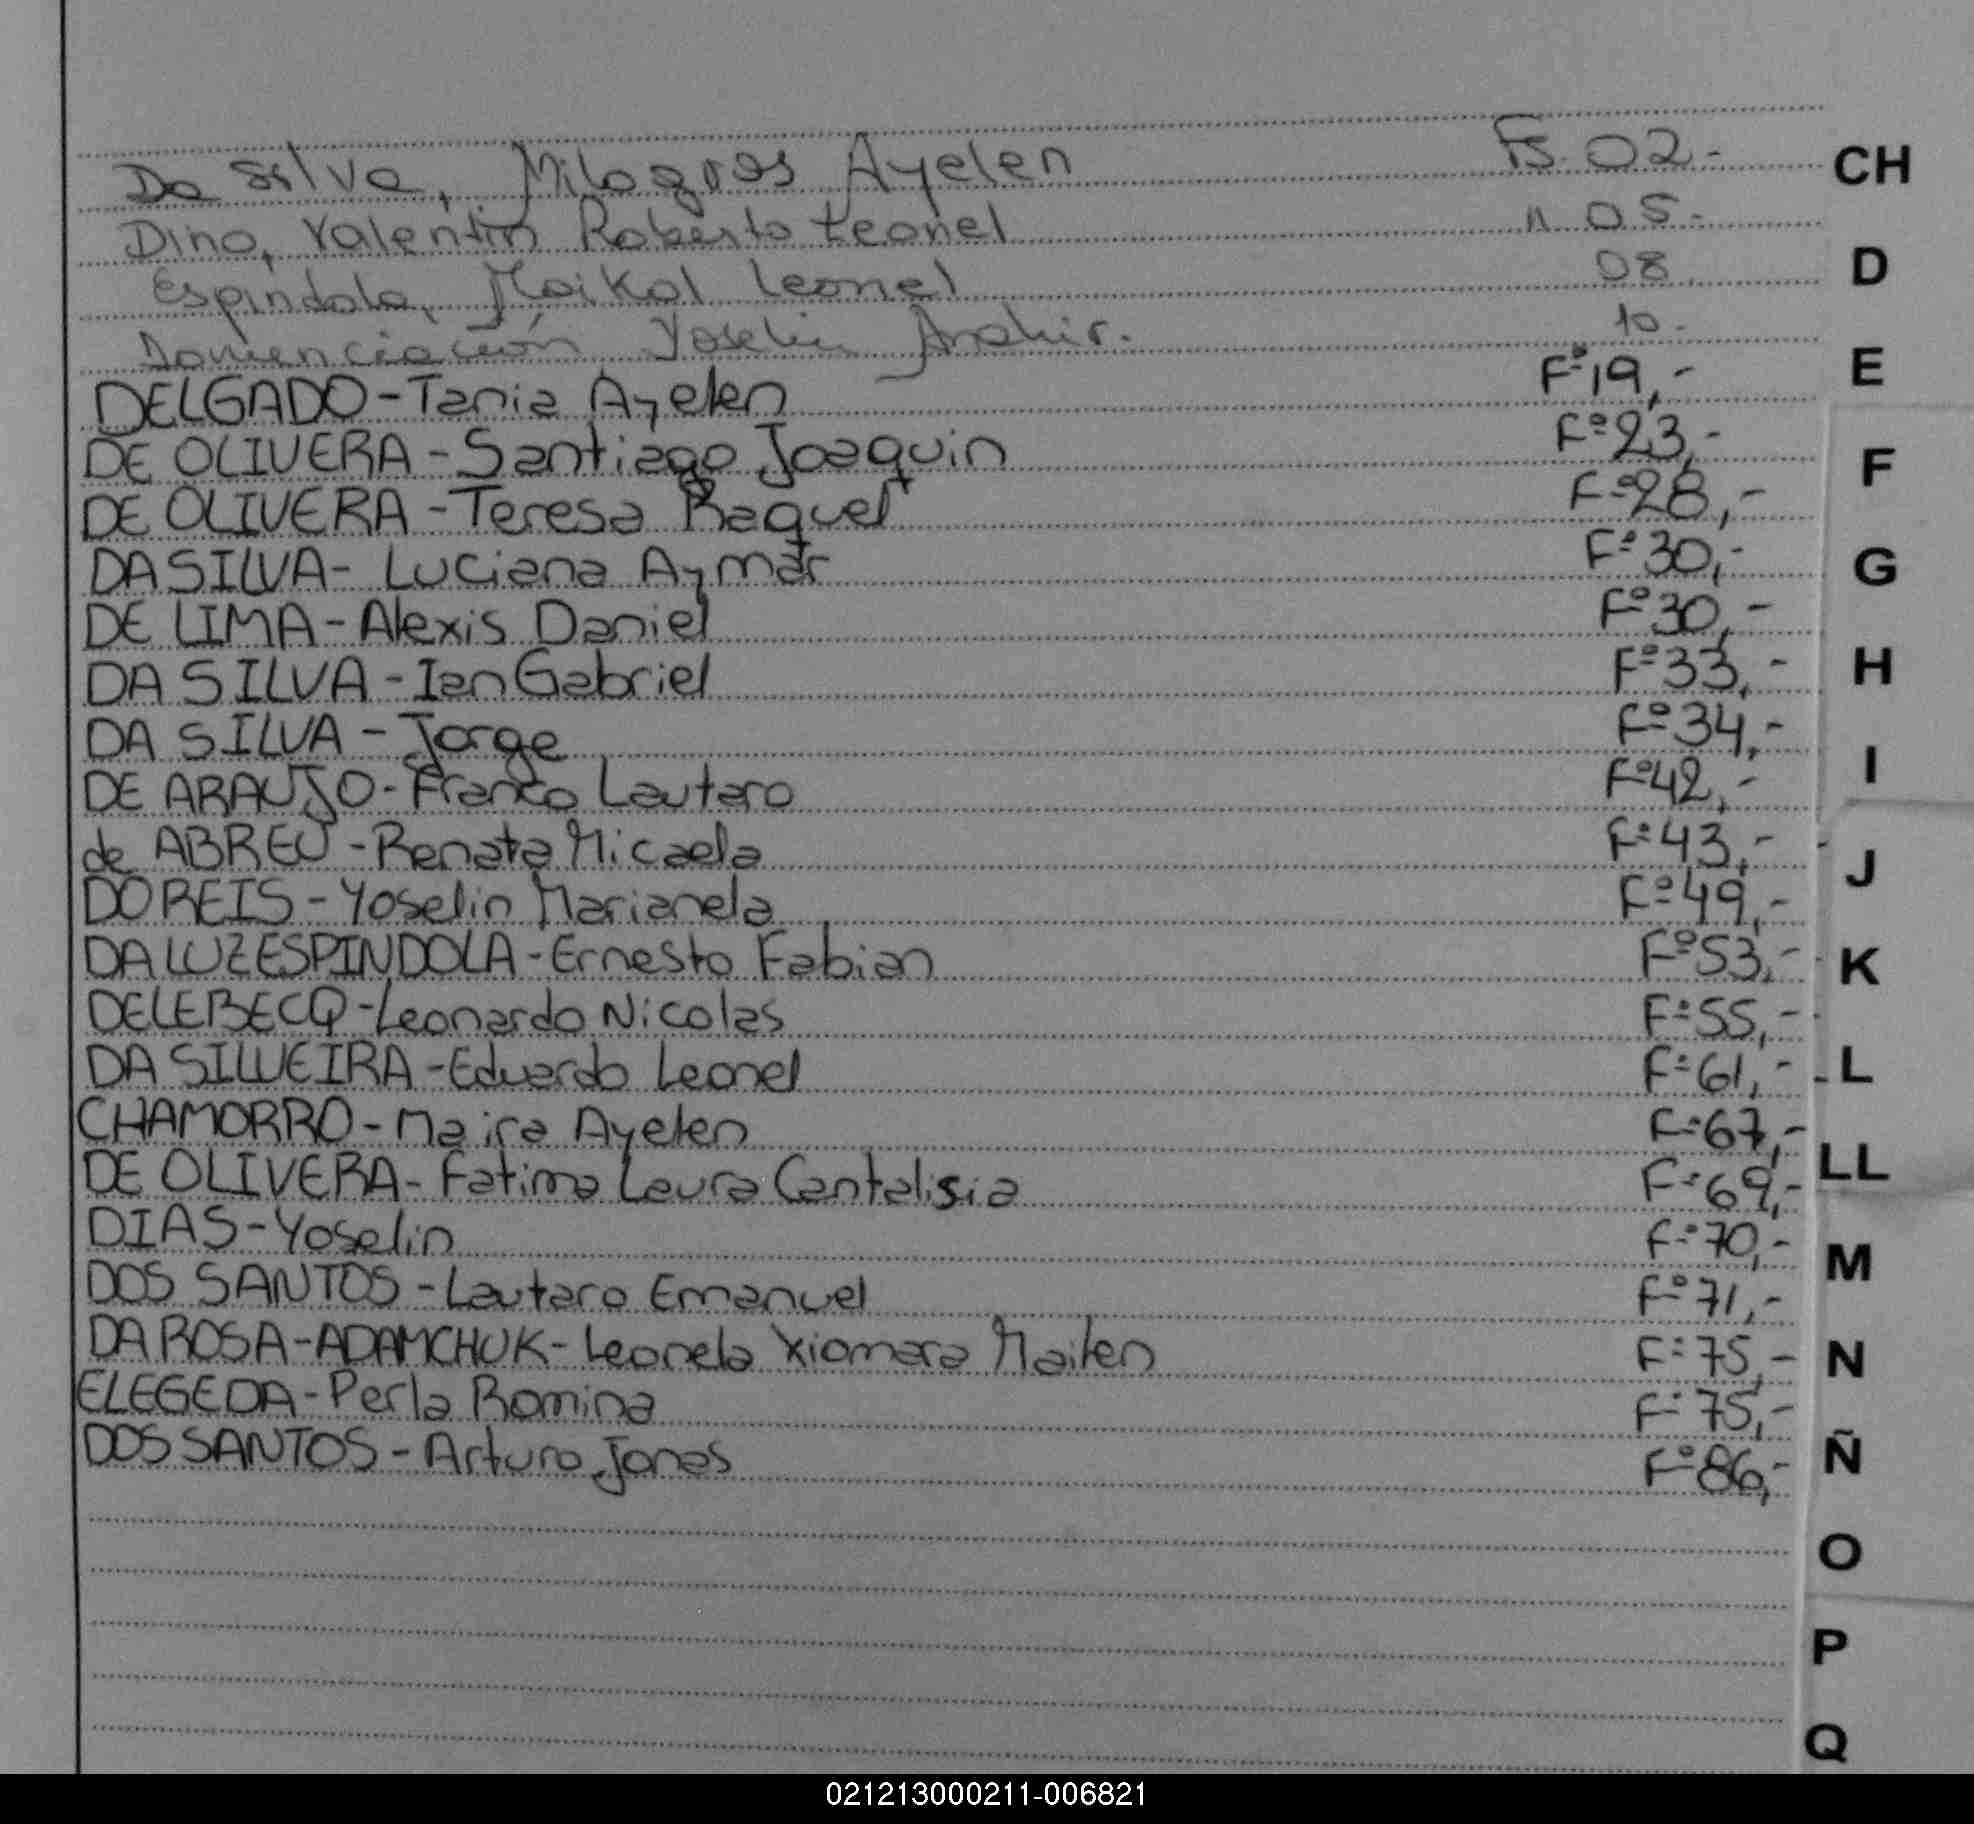 Da Silva, Milagros Ayelen Fs. 02.-
Dino, Valentin Roberto Leonel " 05.-
Espindola, Maikol Leonel 08
Yoselin 10.-
DELGADO - Tania Ayelen Fº 19,-
DE OLIVERA - Santiago Joaquin Fº 23,-
DE OLIVERA - Teresa Raquel Fº 28,-
DA SILVA - Luciana Aymar Fº 30,-
DE LIMA - Alexis Daniel Fº 30,-
DA SILVA - Ian Gabriel Fº 33,-
DA SILVA - Jorge Fº 34,-
DE ARAUJO - Franco Lautaro Fº 42,-
de ABREU - Renata Micaela Fº 43,-
DO REIS - Yoselin Marianela Fº 49,-
DA LUZ ESPINDOLA - Ernesto Fabian Fº 53,-
DELEBECQ - Leonardo Nicolas Fº 55,-
DA SILVEIRA - Eduardo Leonel Fº 61,-
CHAMORRO - Maira Ayelen Fº 67,-
DE OLIVERA - Fatima Laura Cantalisia Fº 69,-
DIAS - Yoselin Fº 70,-
DOS SANTOS - Lautaro Emanuel Fº 71,-
DA ROSA - ADAMCHUK - Leonela Xiomara Mailen Fº 75,-
ELEGEDA - Perla Romina Fº 75,-
DOS SANTOS - Arturo Jonas Fº 86,-
CH
D
E
F
G
H
I
J
K
L
LL
M
N
Ñ
O
P
Q
021213000211-006821